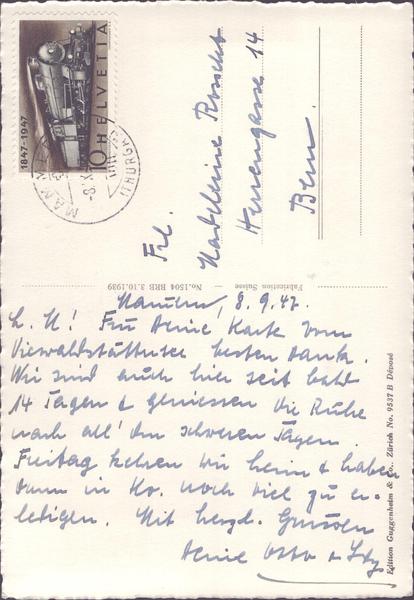 1847-1947
10 HELVETIA
MAMMERN
(THURGAU)
Frl.
Madeleine Rossel
Herrengasse 14
Bern
No. 1504 BRB 3.10.1939 — Fabrication Suisse
Edition Guggenheim & Co., Zürich No. 9537 B Déposé
Mammern, 8.9.47.
L. M! Für Deine Karte vom
Vierwaldstättersee besten Dank.
Wir sind auch hier seit bald
14 Tagen & geniessen die Ruhe
nach all' den schweren Tagen.
Freitag kehren wir heim & haben
dann in noch viel zu er-
ledigen. Mit herzl. Grüssen
Deine Otto &